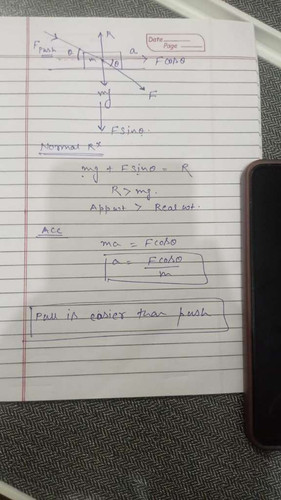 Date
Page
R
F Push
θ
a
m
θ
Fcosθ
mg
F
Fsinθ.
Normal Rˣ
mg + Fsinθ = R
R > mg.
Appart > Real wt.
Acc
ma = Fcosθ
a = Fcosθ
m
Pull is easier than push